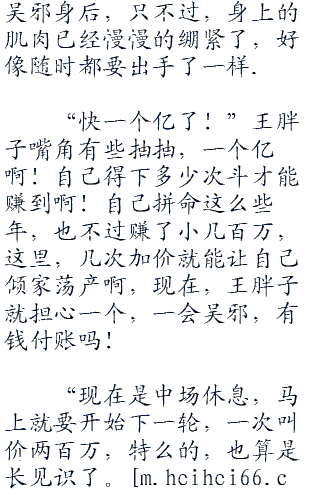 吴邪身后，只不过，身上的
肌肉已经慢慢的绷紧了，好
像随时都要出手了一样.
“快一个亿了！”王胖
子嘴角有些抽抽，一个亿
啊！自己得下多少次斗才能
赚到啊！自己拼命这么些
年，也不过赚了小几百万，
这里，几次加价就能让自己
倾家荡产啊，现在，王胖子
就担心一个，一会吴邪，有
钱付账吗！
“现在是中场休息，马
上就要开始下一轮，一次叫
价两百万，特么的，也算是
长见识了。[m.hcihci66.c